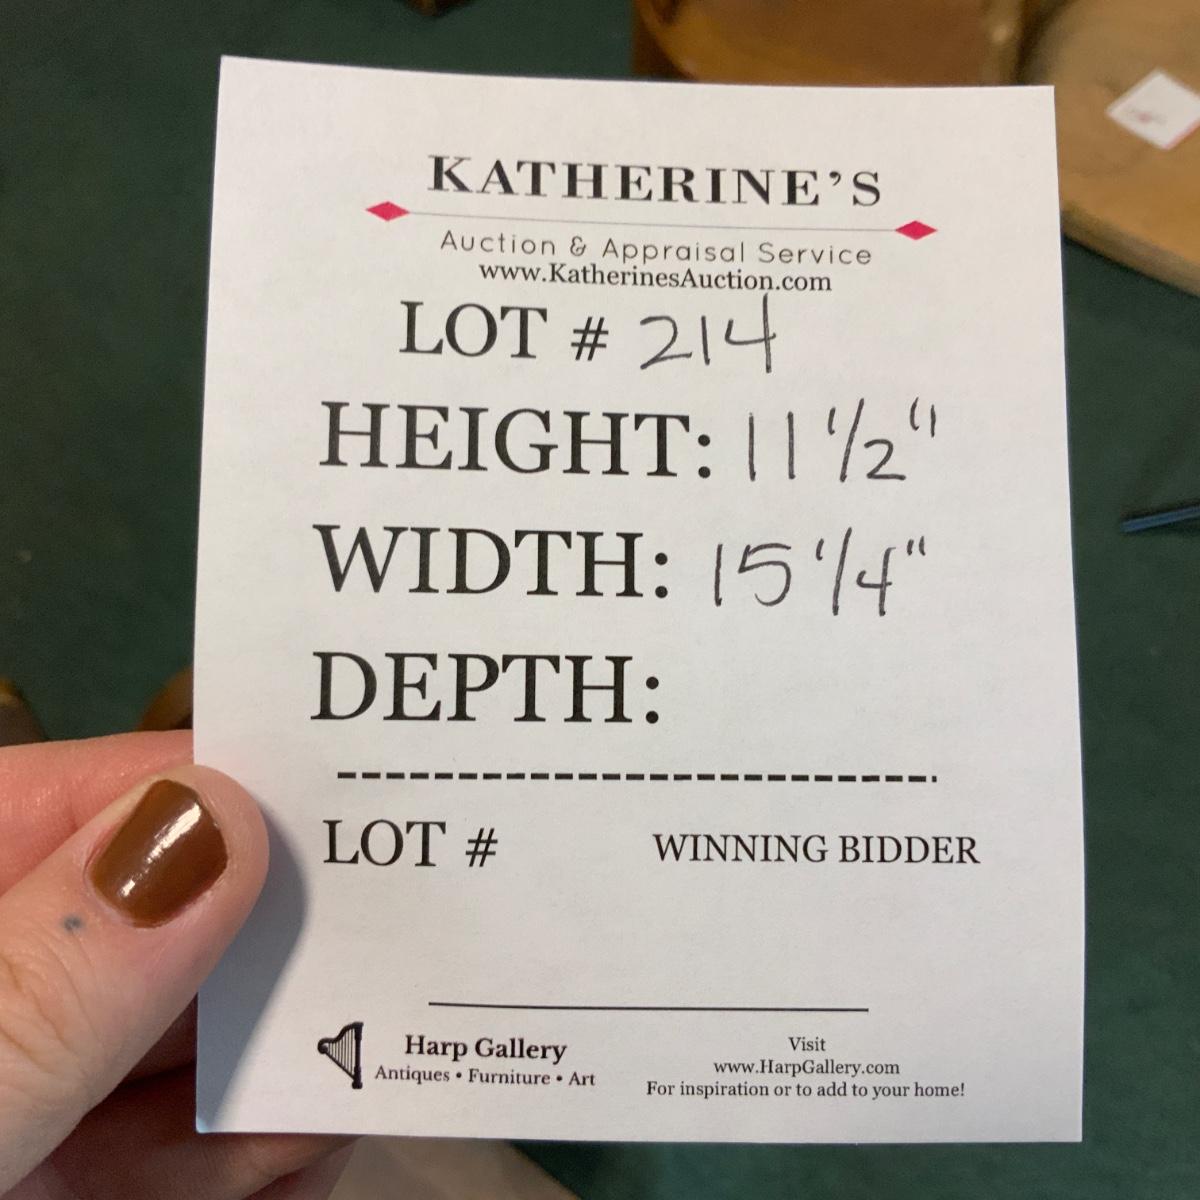 KATHERINE'S
Auction & Appraisal Service
www.KatherinesAuction.com
LOT # 214
HEIGHT: 11 1/2"
WIDTH: 15 1/4"
DEPTH:
LOT # WINNING BIDDER
Harp Gallery
Antiques • Furniture • Art
Visit
www.HarpGallery.com
For inspiration or to add to your home!